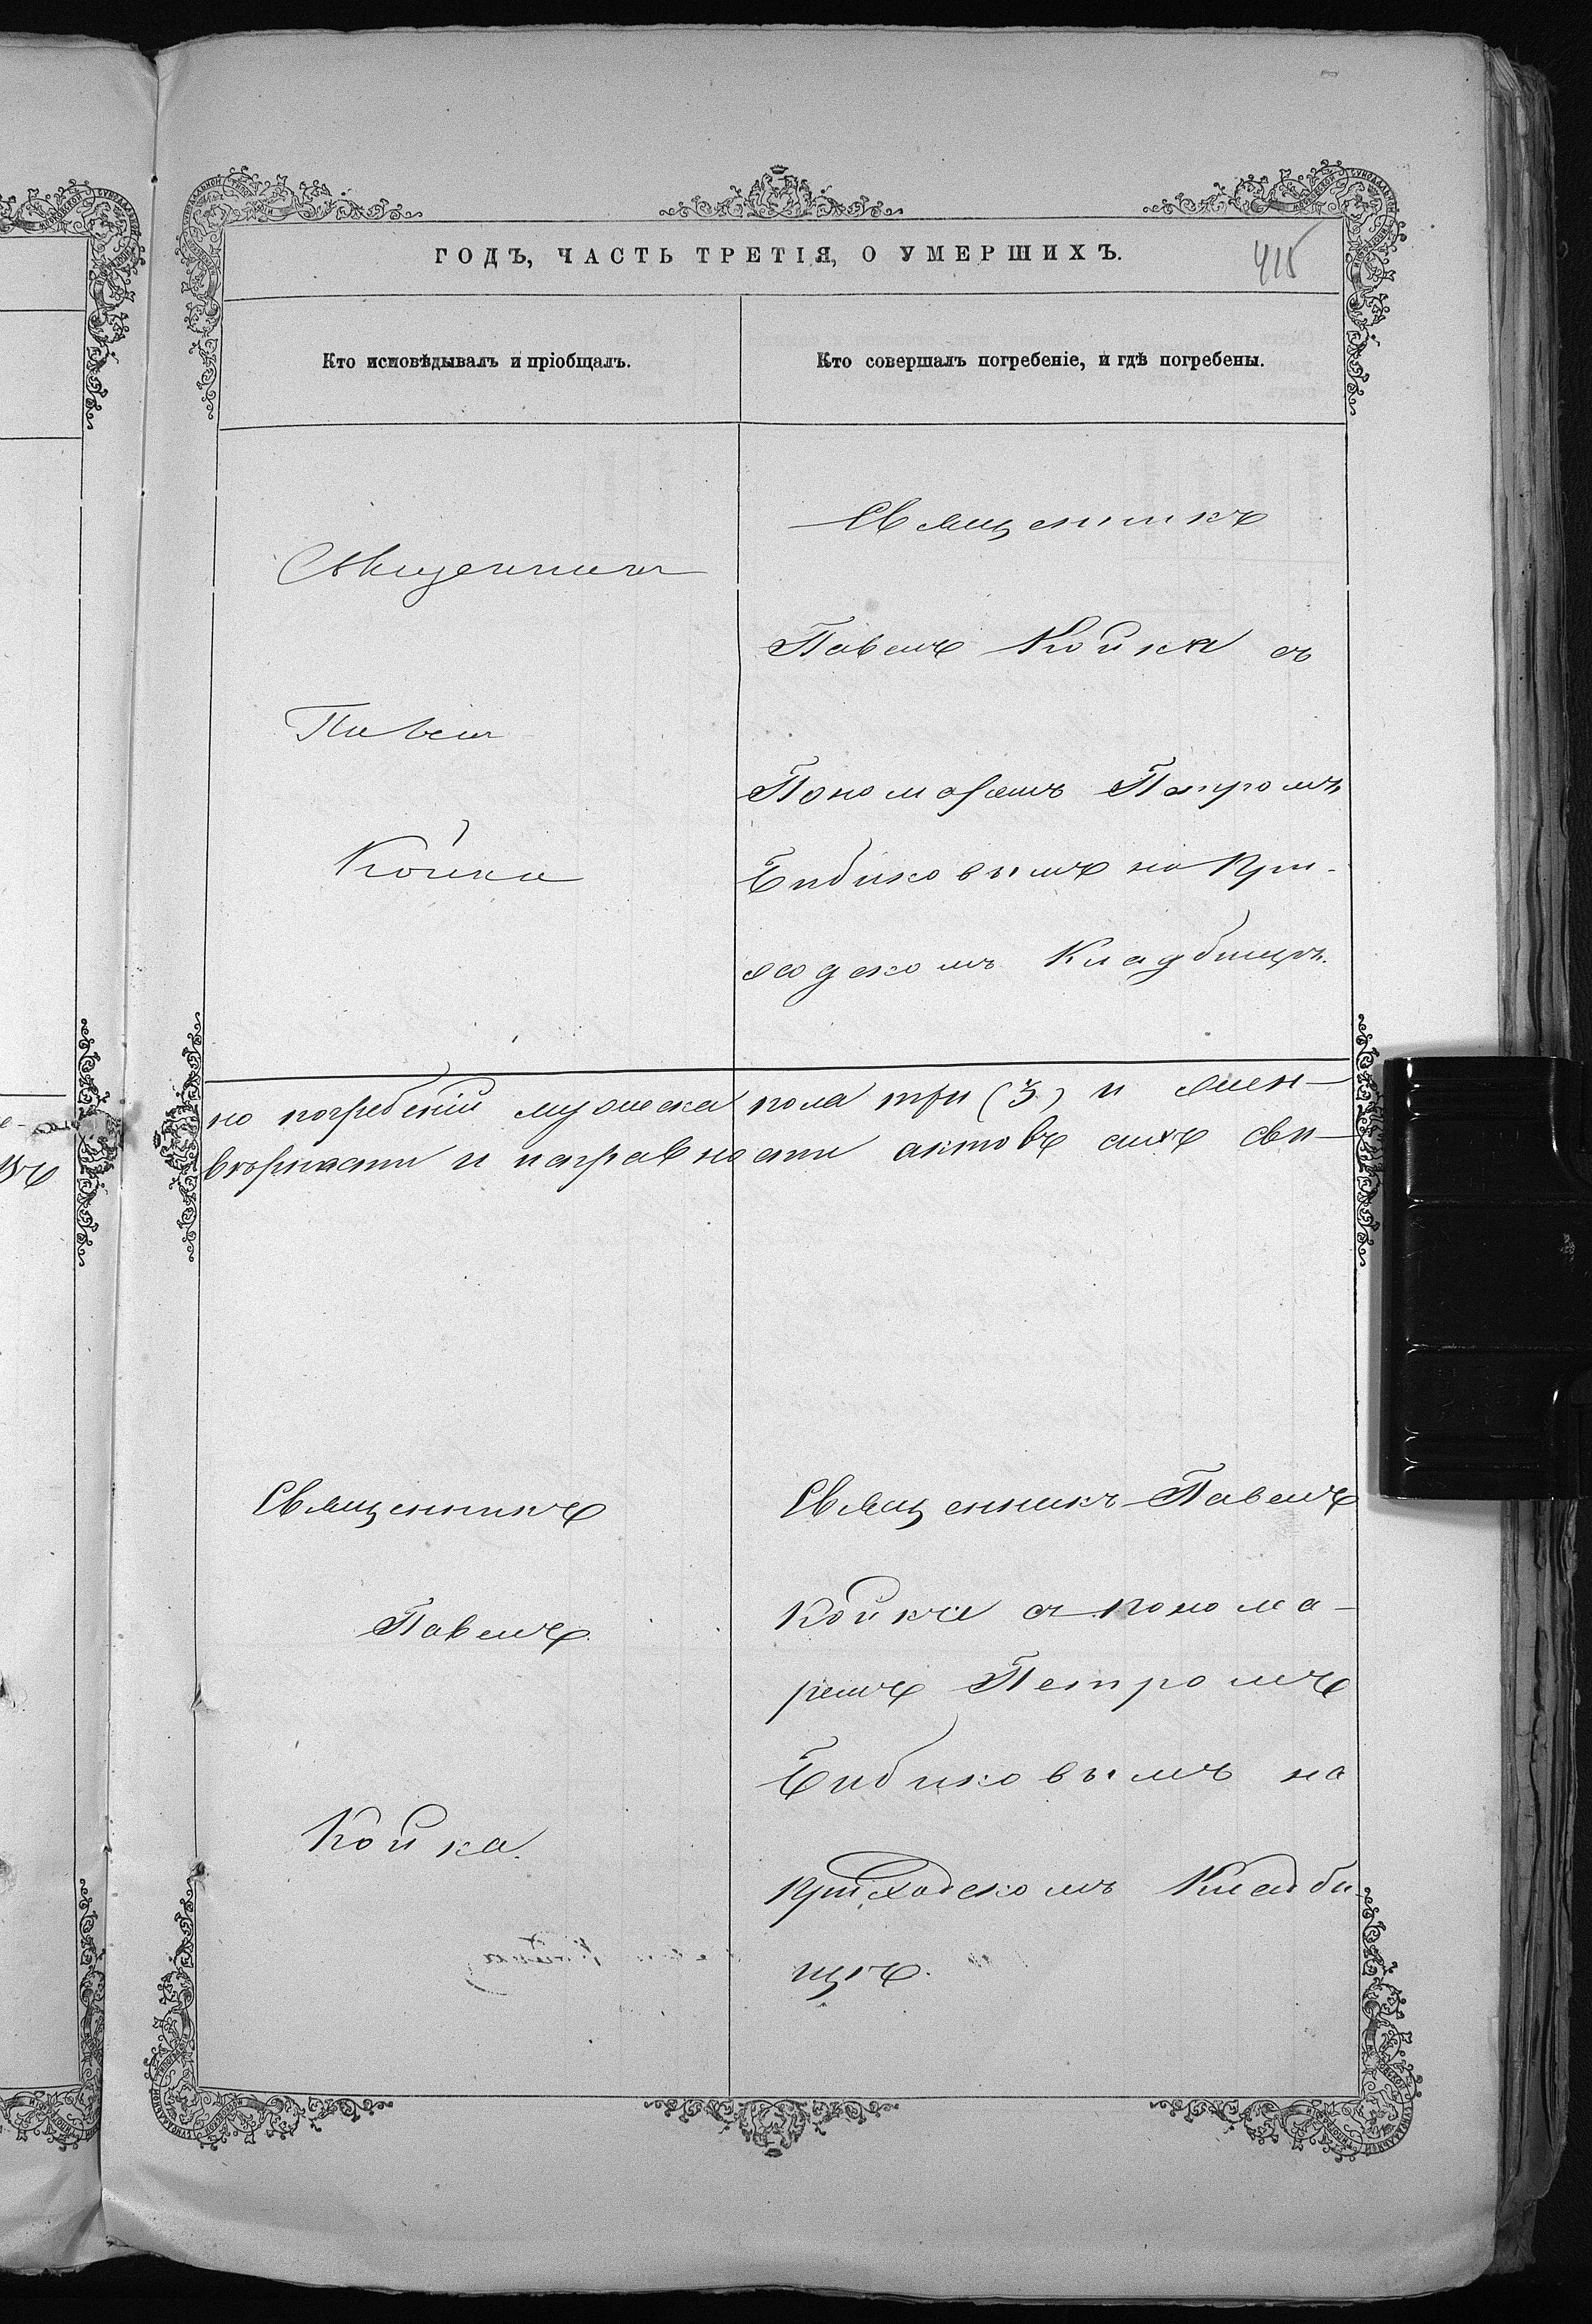 ГОДЪ, ЧАСТЬ ТРЕТІЯ, О УМЕРШИХЪ.
415
Кто исповѣдывалъ и пріобщалъ.
Кто совершалъ погребеніе, и гдѣ погребены.
Священникъ
Павелъ
Койка
Священникъ
Павелъ Койка съ
Пономаремъ Петромъ
Бибиковымъ на При-
ходскомъ Кладбищѣ.
но погребеній мужеска пола три (3) и жен-
вѣрности и исправности актовъ сихъ сви-
Священникъ
Павелъ
Койка.
Священникъ Павелъ
Койка съ понома-
ремъ Петромъ
Бибиковымъ на
приходскомъ Кладби-
щѣ.